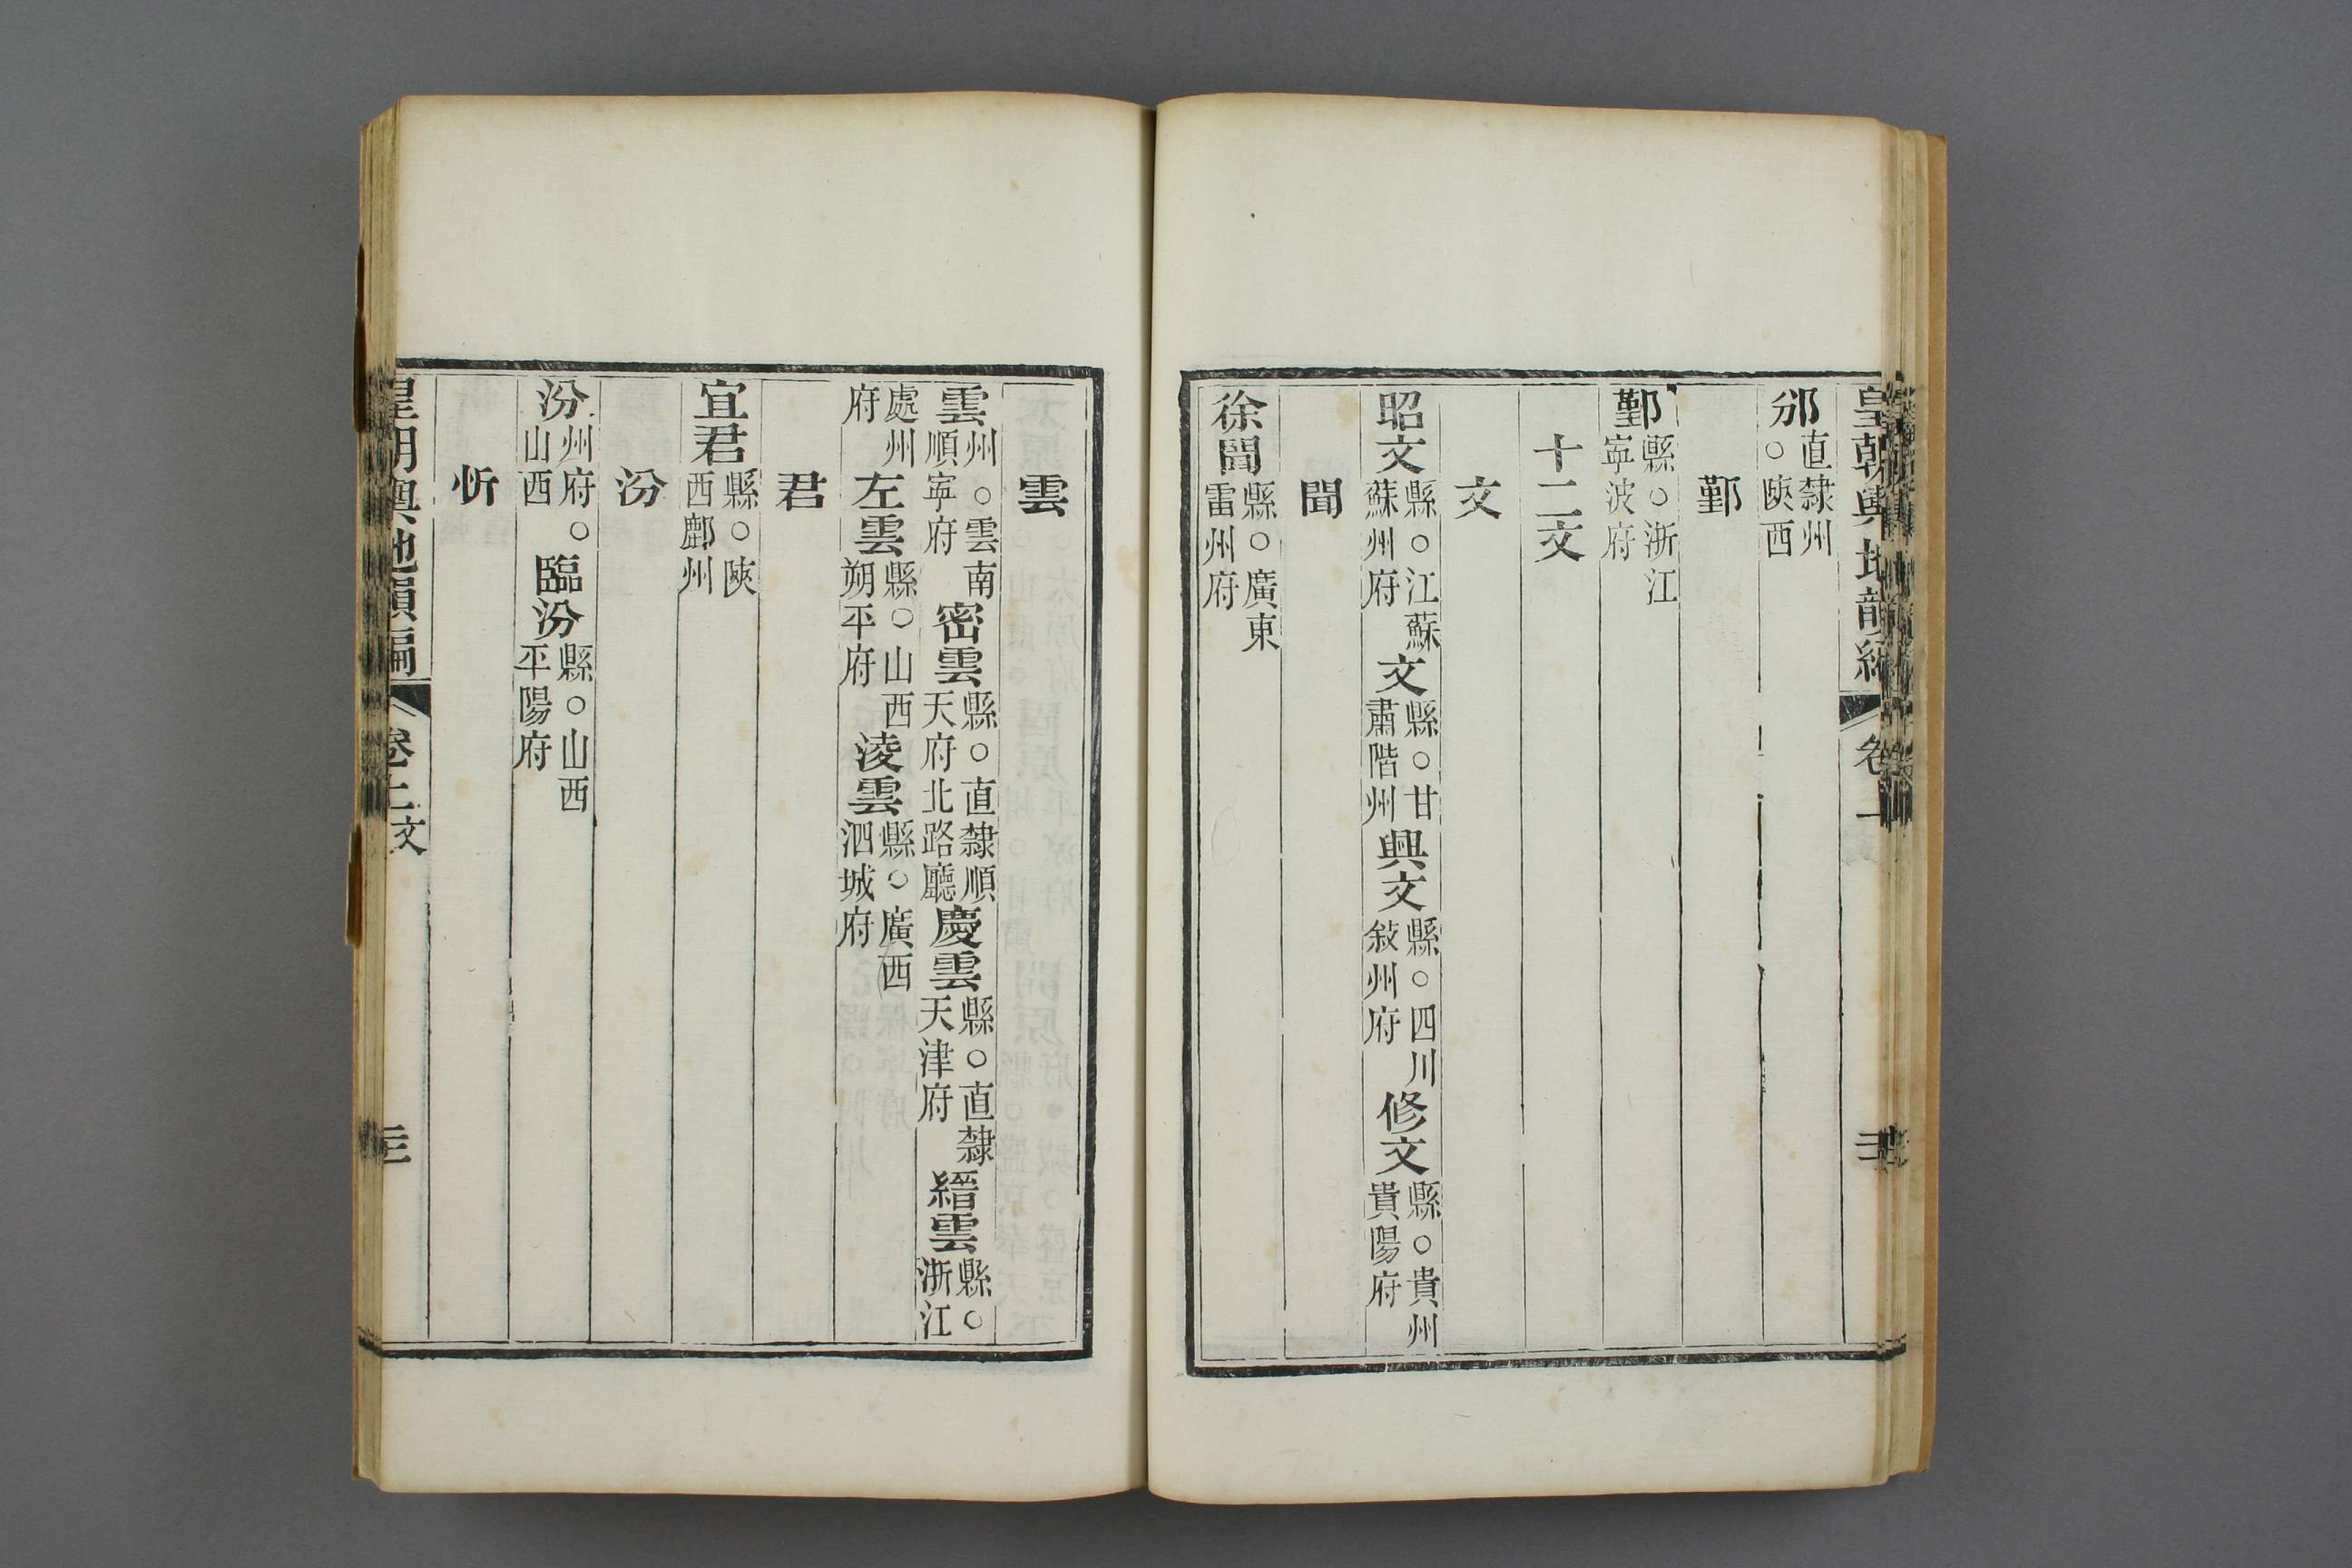 皇朝輿地韻編 卷一
邠直隸州○陝西
鄞
鄞縣○浙江寧波府
十二文
文
昭文縣○江蘇蘇州府 文縣○甘肅階州 興文縣○四川敍州府 修文縣○貴州貴陽府
聞
徐聞縣○廣東雷州府
雲
雲州○雲南順寧府 密雲縣○直隸順天府北路廳 慶雲縣○直隸天津府 縉雲縣○浙江
處州府 左雲縣○山西朔平府 淩雲縣○廣西泗城府
君
宜君縣○陝西鄜州
汾
汾州府○山西 臨汾縣○山西平陽府
忻
皇朝輿地韻編 卷上文